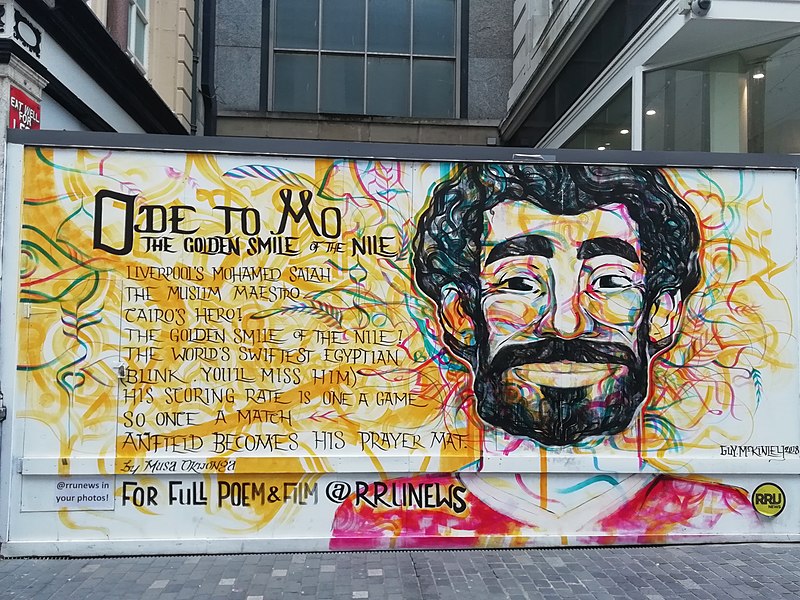 EAT WELL
FOR
ODE TO MO
THE GOLDEN SMILE OF THE NILE
LIVERPOOL'S MOHAMED SALAH
THE MUSLIM MAESTRO
CAIRO'S HERO!
THE GOLDEN SMILE OF THE NILE!
THE WORLD'S SWIFTEST EGYPTIAN
(BLINK YOU'LL MISS HIM)
HIS SCORING RATE IS ONE A GAME
SO ONCE A MATCH
ANFIELD BECOMES HIS PRAYER MAT.
By MUSA OKWONGA
GUY.McKINLEY 2018
@rrunews in
your photos!
FOR FULL POEM & FILM @RRUNEWS
RRU
NEWS